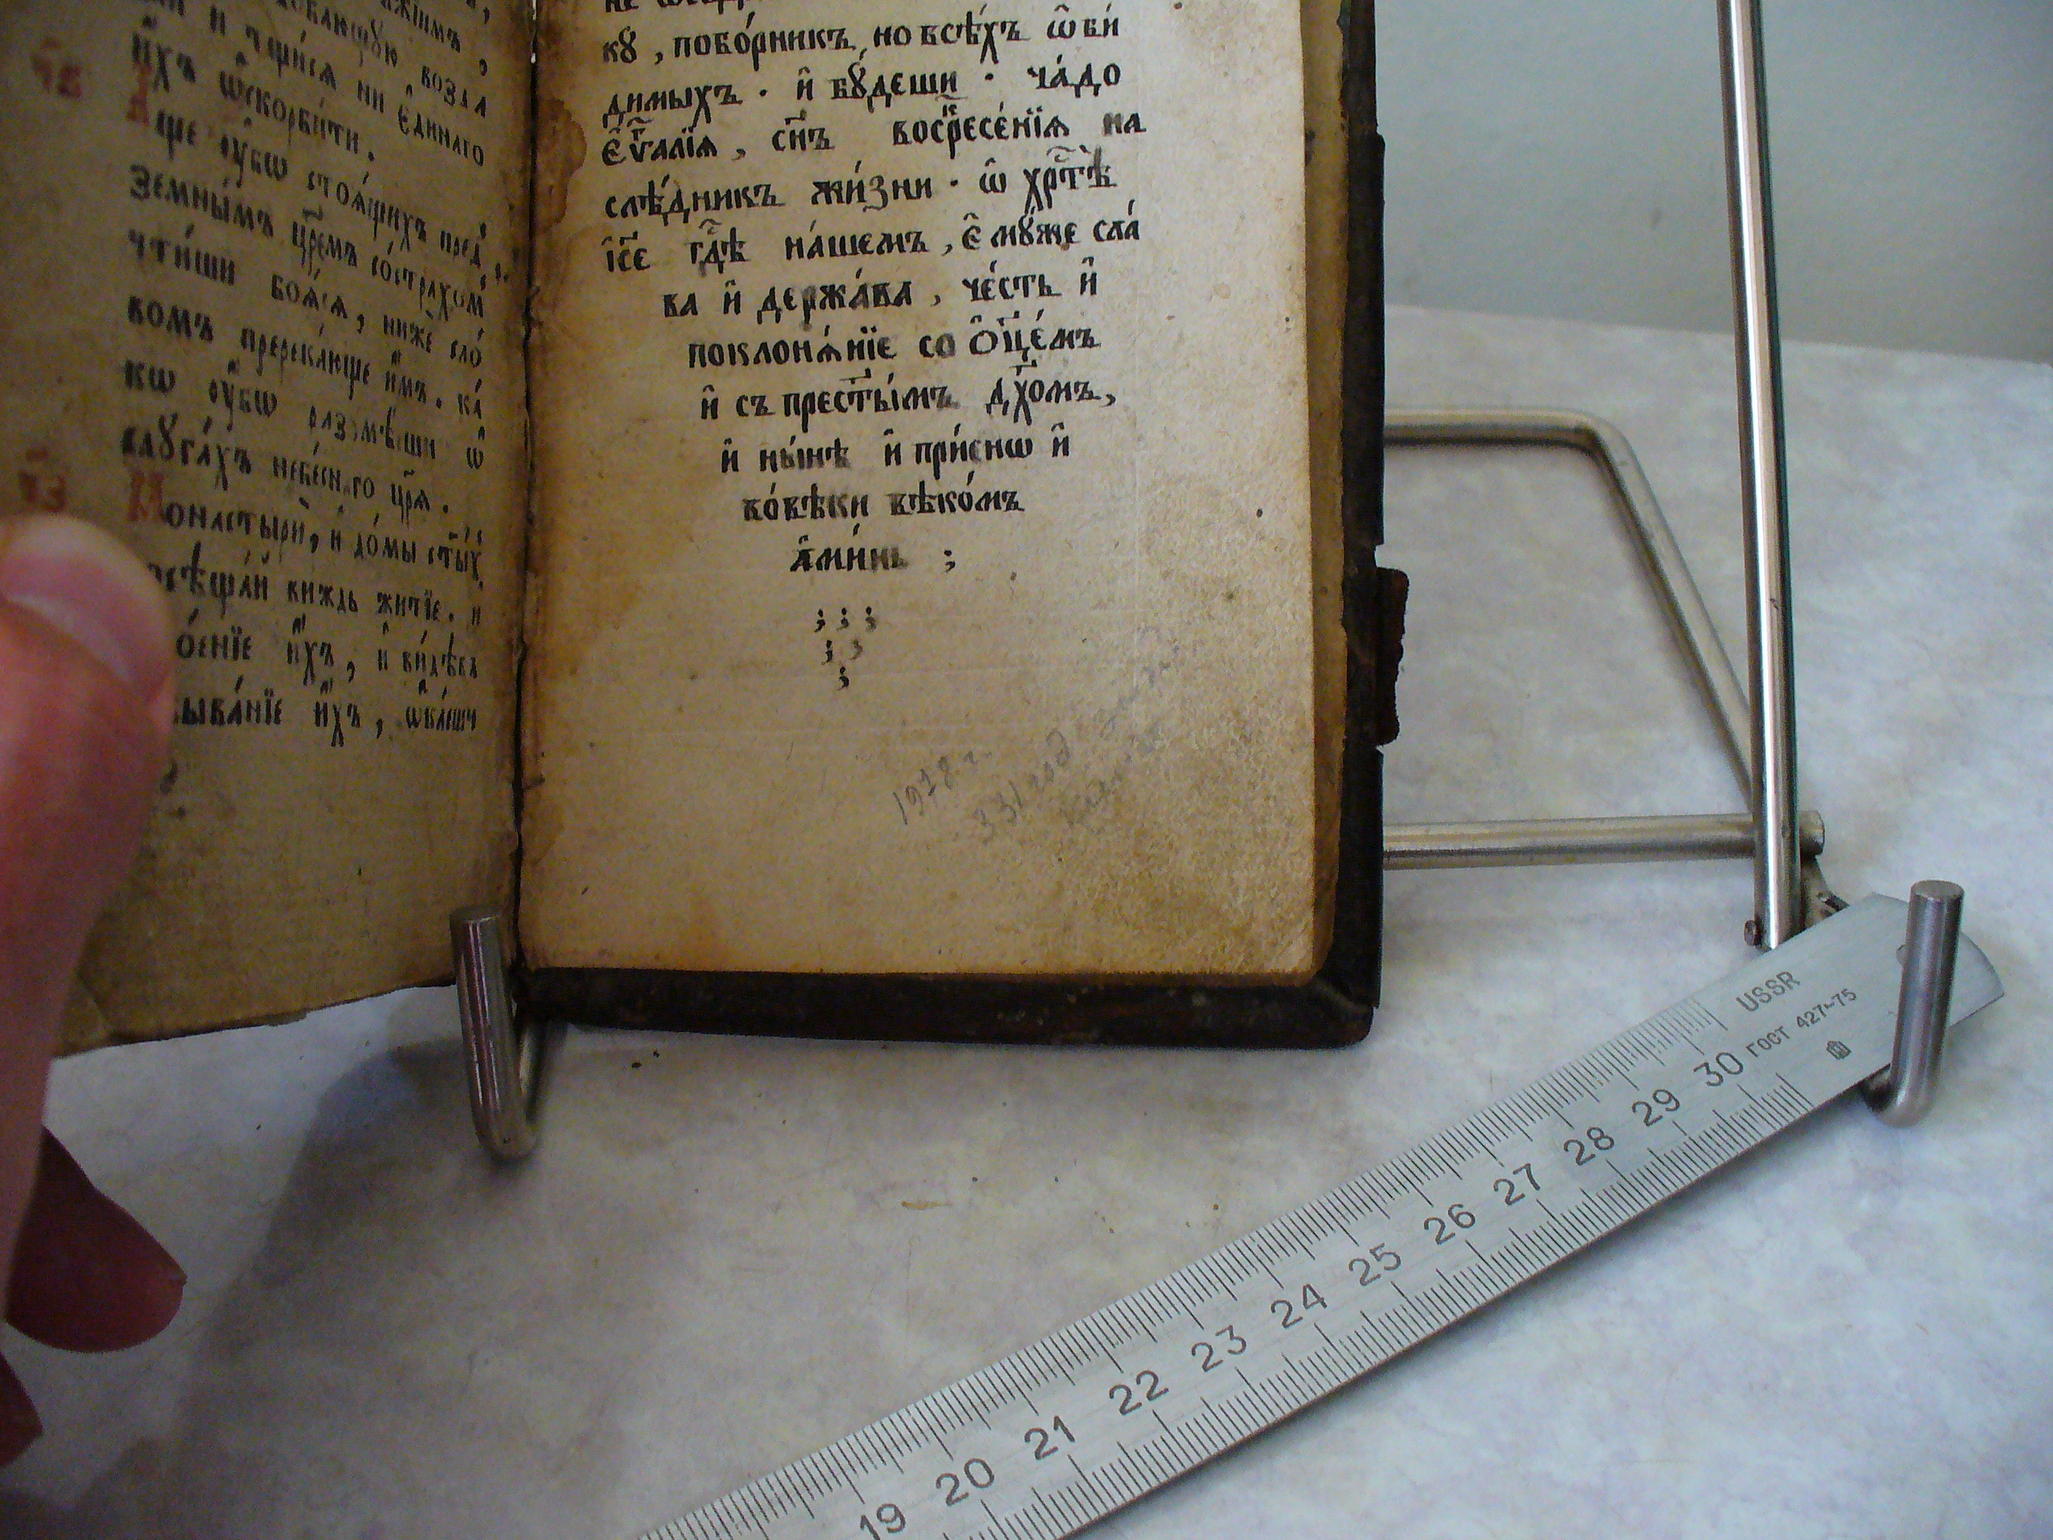 ни единаго
и҆́хъ ѡ҆скорби́ти.
А҆ще ᲂу҆́бѡ стоѧ́щихъ пред̾
земны́мъ цр҃емъ со́страхом̾
чти́ши боѧ́сѧ, ниже сло́
комъ пререка́юще и҆̀мъ. ка́
кѡ ᲂу҆́бѡ разꙋмѣ́еши ѡ҆
слꙋга́хъ небе́снаго цр҃ѧ̀.
Монастыри̑, и҆ до́мы ст҃ы́хъ
посѣща́й виждь житїе. и҆
и҆́хъ, и҆ ви́дѣвъ
и҆́хъ,
кꙋ, побо́рникъ, но всѣ́хъ ѡ҆би́
димыхъ. и҆ бꙋ́деши. ча́до
є҆ѵⷢ҇алїѧ, сн҃ъ воскр҃есе́нїѧ на
слѣ́дникъ жи́зни. ѡ҆ хрⷭ҇тѣ̀
і҆и҃се гдⷭ҇ѣ на́шемъ, є҆мꙋ́же сла́
ва и҆ держа́ва, че́сть и҆
поклонѧ́нїе со ѻ҆ц҃е́мъ
и҆ съ прест҃ы́мъ дх҃омъ,
и҆ ны́нѣ и҆ при́снѡ и҆
во́вѣки вѣко́мъ
а҆ми́нь ;
; ; ;
; ;
;
1978 г.
331 год
USSR
ГОСТ 427-75
19 20 21 22 23 24 25 26 27 28 29 30